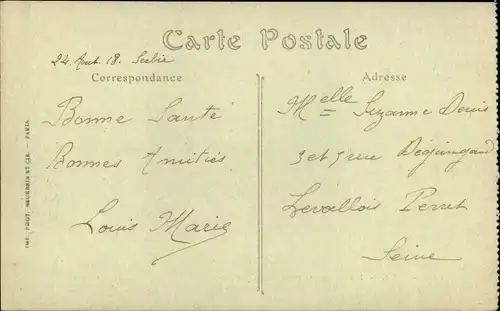 Carte Postale
24 Aout 18. Serbie
Correspondance
Bonne Santé
Bonnes Amitiés
Louis Marie
Adresse
Melle Suzanne Denis
3 et 5 rue Déguingand
Levallois Perret
Seine
IMP. PHOT. NEURDEIN ET CIE. — PARIS.